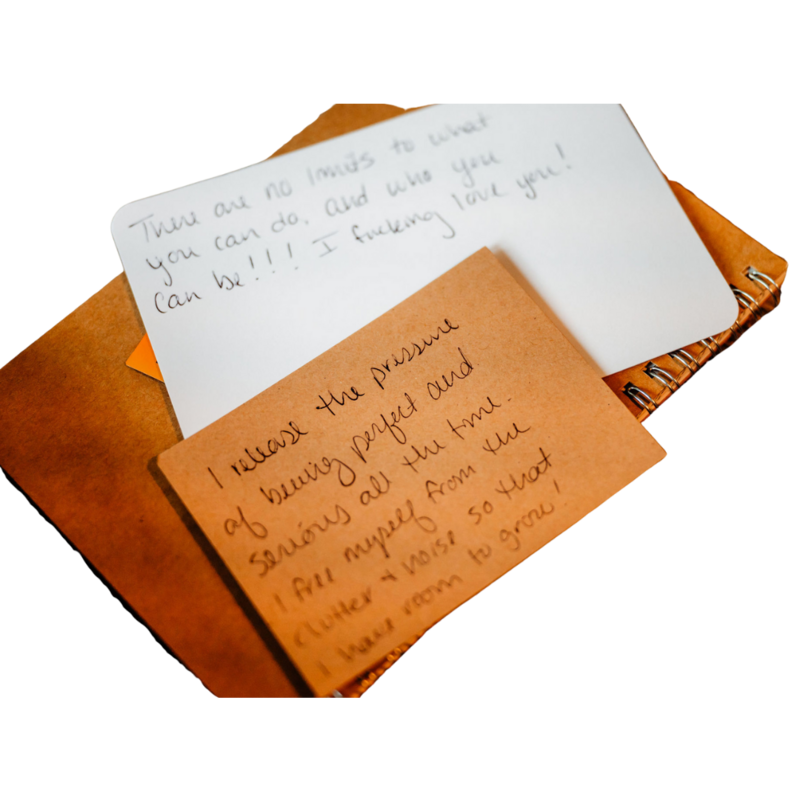 There are no limits to what
you can do, and who you
can be!!! I fucking love you!
I release the pressure
of being perfect and
serious all the time.
I free myself from the
clutter + noise so that
I have room to grow!